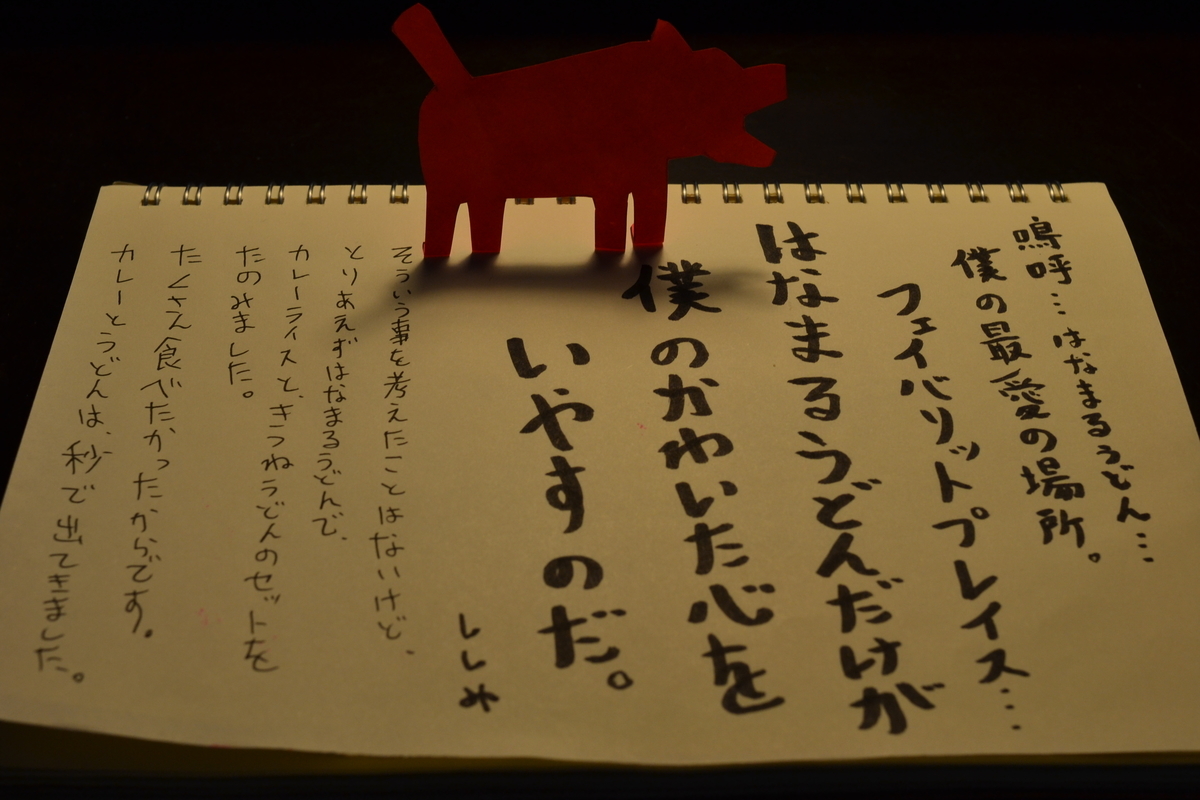 嗚呼…はなまるうどん…
僕の最愛の場所。
フェイバリットプレイス…
はなまるうどんだけが
僕のかわいた心を
いやすのだ。
そういう事を考えたことはないけど、
とりあえずはなまるうどんで、
カレーライスと、きつねうどんのセットを
たのみました。
たくさん食べたかったからです。
カレーとうどんは、秒で出てきました。